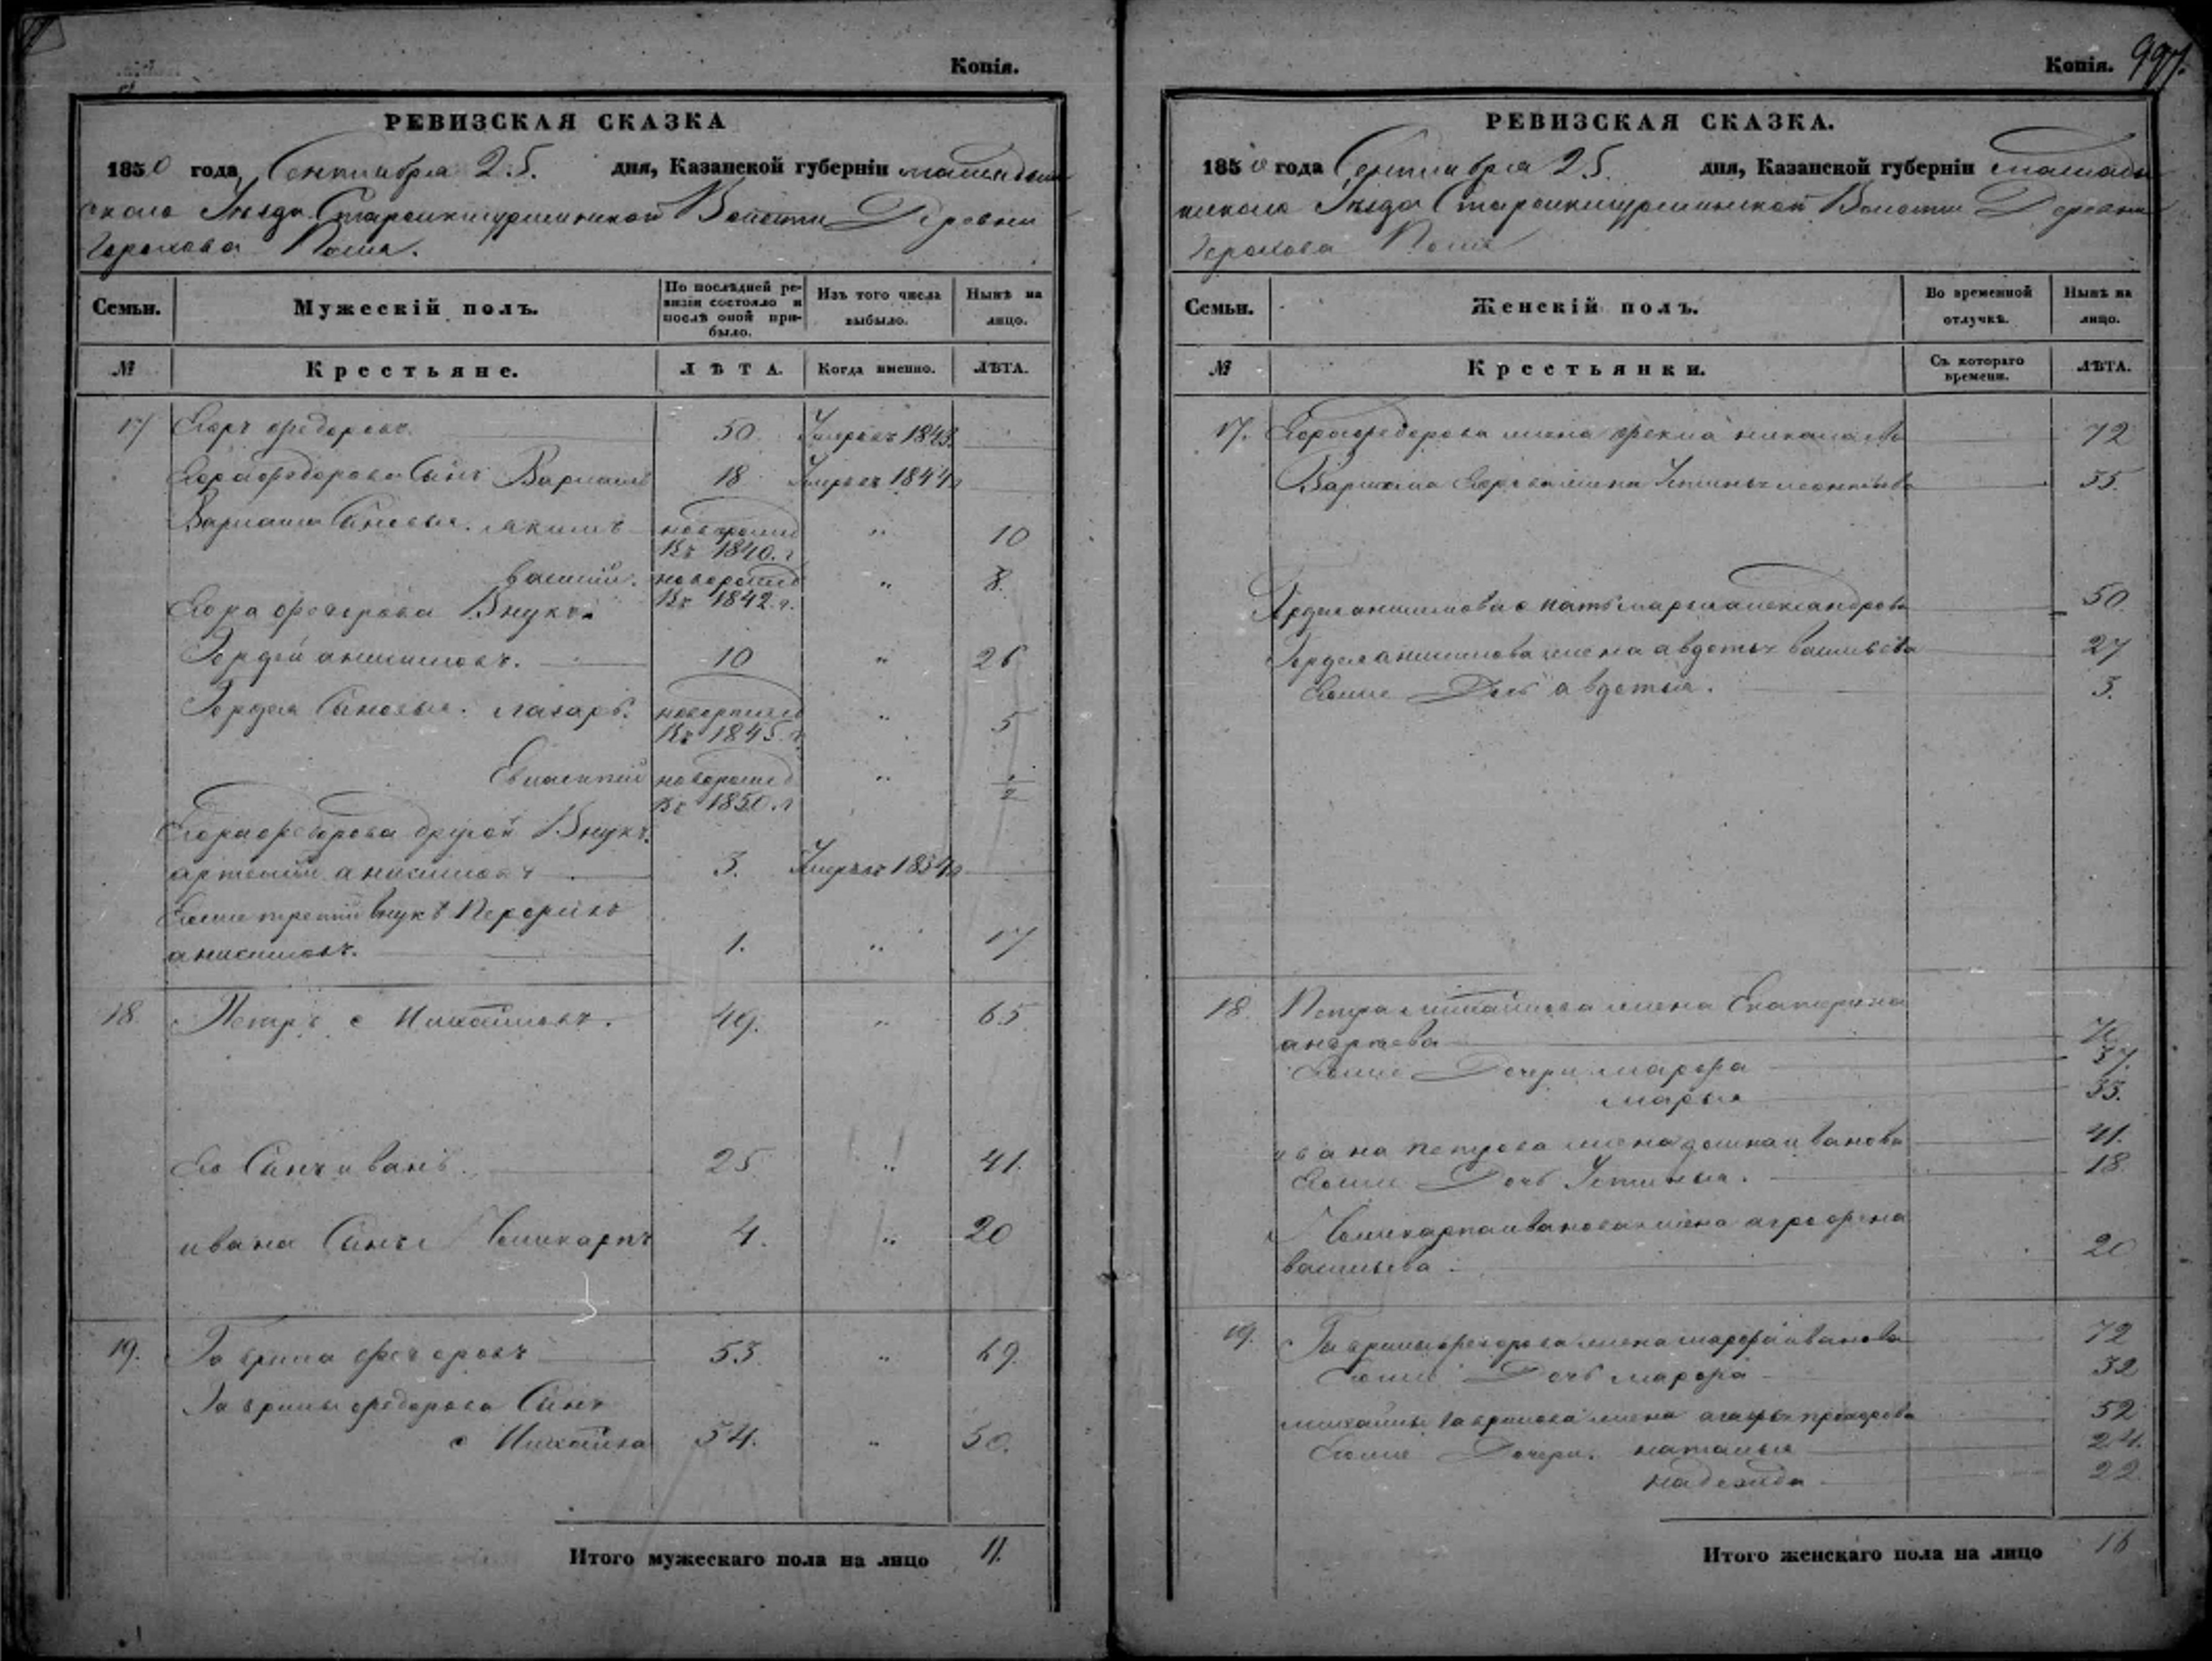 Копія.
РЕВИЗСКАЯ СКАЗКА
1850 года Сентября 25. дня, Казанской губерніи
Уѣзда Волости Деревни
Горохова Поля.
Семьи. Мужескій полъ. По послѣдней ревизіи состояло и послѣ оной прибыло. Изъ того числа выбыло. Нынѣ на лицо.
№ Крестьяне. ЛѢТА. Когда именно. ЛѢТА.
17 Егоръ федоровъ 50. Умеръ въ 1843.
Егора федорова Сынъ Варлам 18 Умеръ въ 1844
Варлама Сыновья. якимъ новорожд 10
Въ 1840. г
васили. новорожд 8.
Въ 1842. г.
Егора федорова Внукъ
Гордѣй анисимовъ. 10 26
Гордея Сыновья. лазарь. новорожд 5
Въ 1845. г
новорожд 1/2
Въ 1850. г
Егора федорова другой Внукъ.
артемии анисимовъ 3. Умеръ въ
Егоже третии внукъ
анисимовъ. 1. 17
18 Петръ Михайловъ. 49. 65
Ево Сынъ иванъ 25 41.
ивана Сынъ Поликарпъ 4. 20
19. Гаврила федоровъ 53. 69.
Гаврилы федорова Сынъ
Михайла 34. 50.
Итого мужескаго пола на лицо 11.
Копія. 997.
РЕВИЗСКАЯ СКАЗКА.
1850 года Сентября 25. дня, Казанской губерніи
Уѣзда Волости Деревни
Горохова Поля
Семьи. Женскій полъ. Во временной отлучкѣ. Нынѣ на лицо.
№ Крестьянки. Съ котораго времени. ЛѢТА.
17. Егора федорова жена фекла николаева 72
Варлама Егорова жена леонтьева 35.
Гордея анисимова мать марья александрова 50
Гордея анисимова жена авдотья васильева 27
Егоже Дочь авдотья. 3.
18. Петра михайлова жена Екатерина
андреева
Егоже Дочери марфа 37.
марья 33.
ивана петрова жена домна иванова 41.
Егоже Дочь Устинья. 18
Поликарпа иванова жена аграфена
васильева 20
19. Гаврилы федорова жена марфа иванова 72
Егоже Дочь марфа 32
михайлы гаврилова жена агафья прохорова 52
Егоже Дочери. наталья 24.
надежда 22
Итого женскаго пола на лицо 16